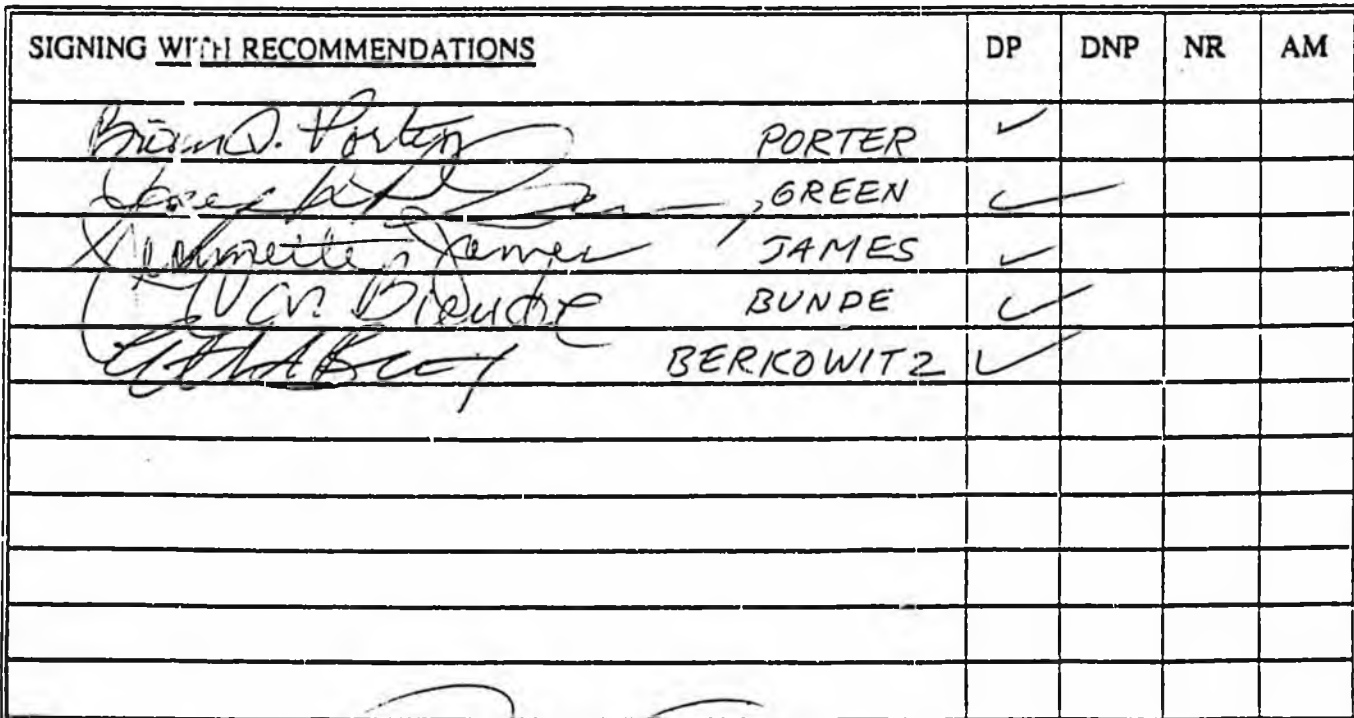 SIGNING WITH RECOMMENDATIONS DP DNP NR AM
Brian D. Porter PORTER ✓
GREEN ✓
Jeannette James JAMES ✓
Con Bunde BUNDE ✓
BERKOWITZ ✓